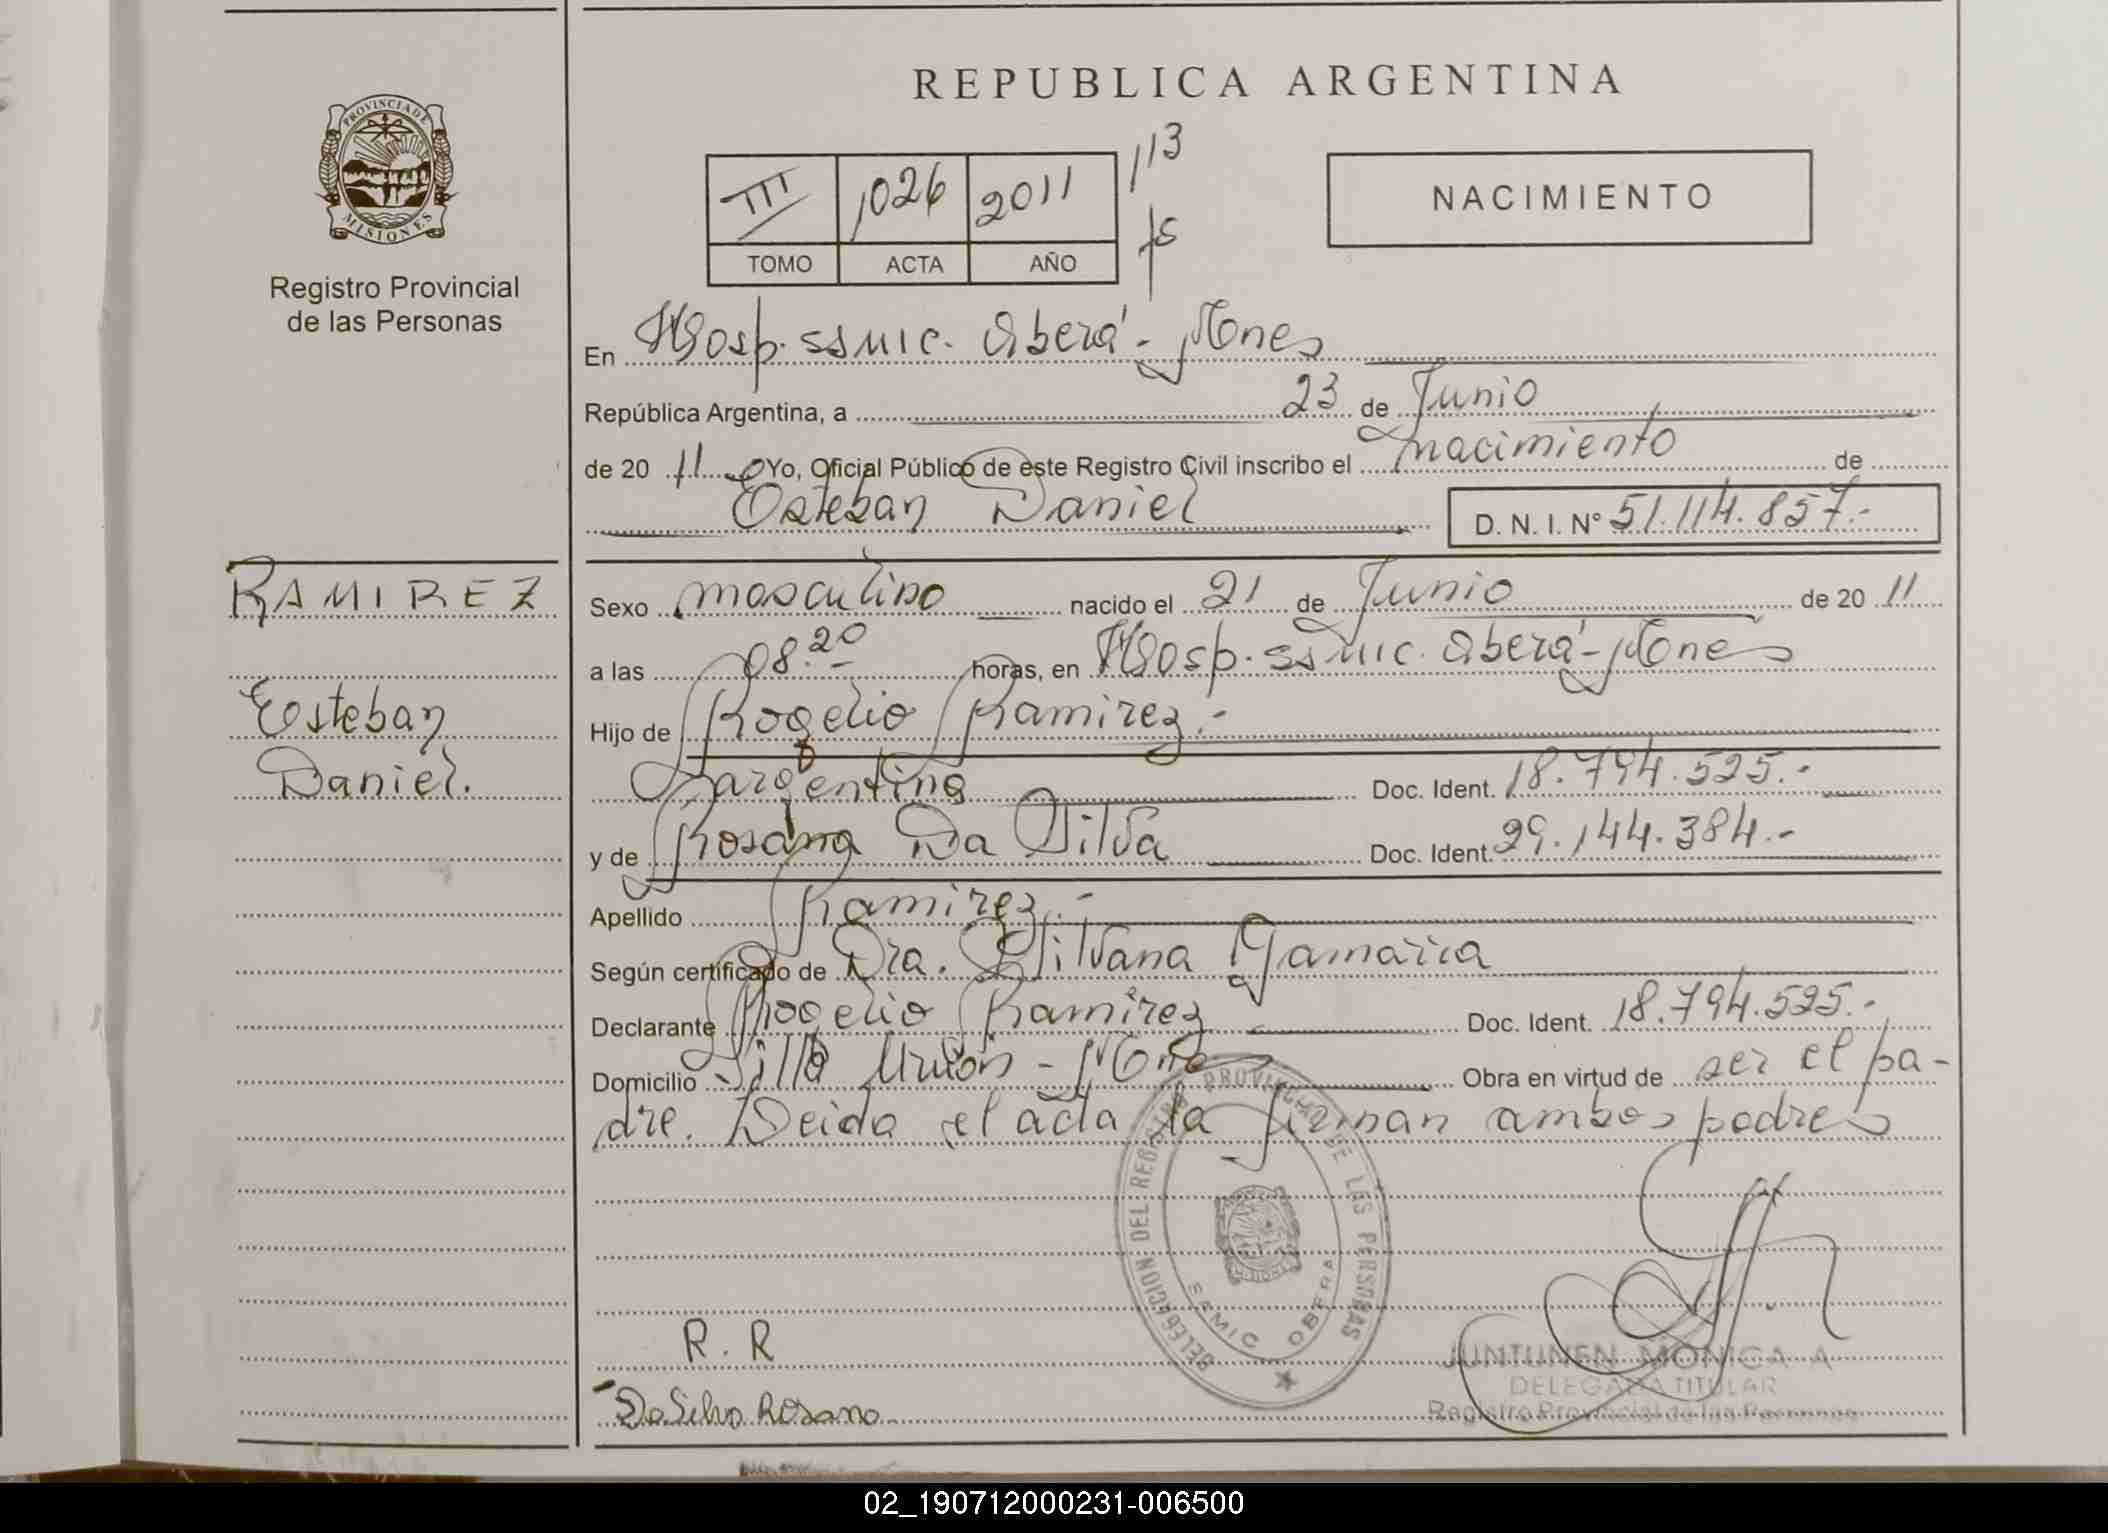 REPUBLICA ARGENTINA
PROVINCIA DE
MISIONES
Registro Provincial
de las Personas
III 1026 2011
TOMO ACTA AÑO
113
fs
NACIMIENTO
En Hosp. SSMIC. Oberá - Mnes
República Argentina, a 23 de Junio
de 20 11 Yo, Oficial Público de este Registro Civil inscribo el nacimiento de
Esteban Daniel D. N. I. Nº 51.114.857.-
RAMIREZ
Esteban
Daniel.
Sexo masculino nacido el 21 de Junio de 20 11
a las 08.20 horas, en Hosp. SSMIC. Oberá - Mnes
Hijo de Rogelio Ramirez.-
argentina Doc. Ident. 18.794.525.-
y de Rosana Da Silva Doc. Ident. 29.144.384.-
Apellido Ramirez.-
Según certificado de Dra. Silvana Gamarra
Declarante Rogelio Ramirez Doc. Ident. 18.794.525.-
Domicilio Villa Unión - Mnes Obra en virtud de ser el pa-
dre. Leida el acta la firman ambos padres
DELEGACION DEL REGISTRO PROVINCIAL DE LAS PERSONAS
OBERA
R. R
Da Silva Rosana
JUNTUNEN MONICA A
DELEGADA TITULAR
Registro Provincial de las Personas
02_190712000231-006500